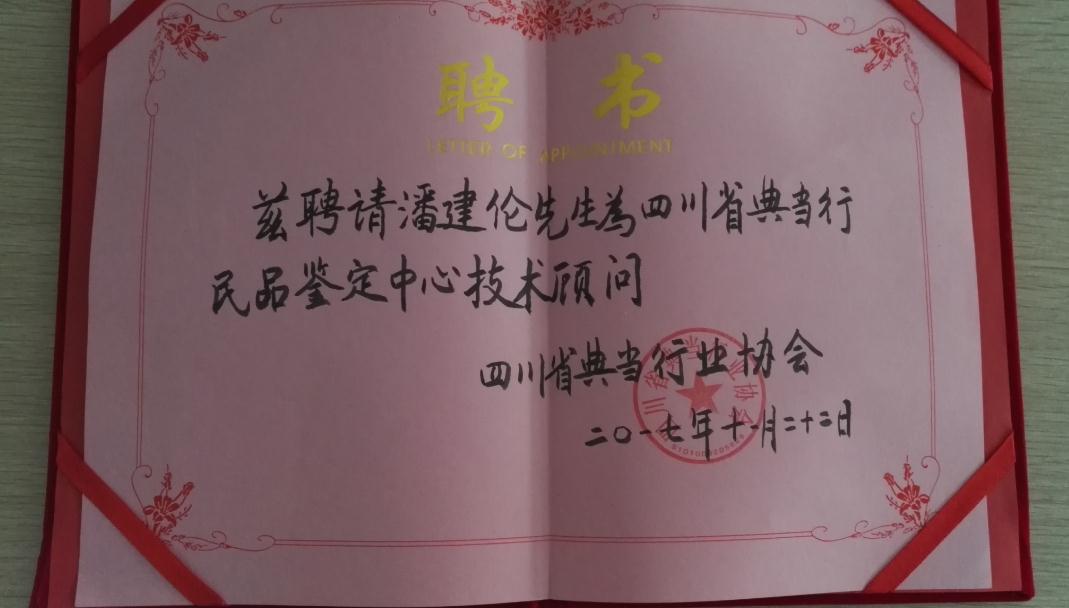 聘 书
LETTER OF APPOINTMENT
兹聘请潘建伦先生为四川省典当行
民品鉴定中心技术顾问
四川省典当行业协会
二〇一七年十一月二十二日